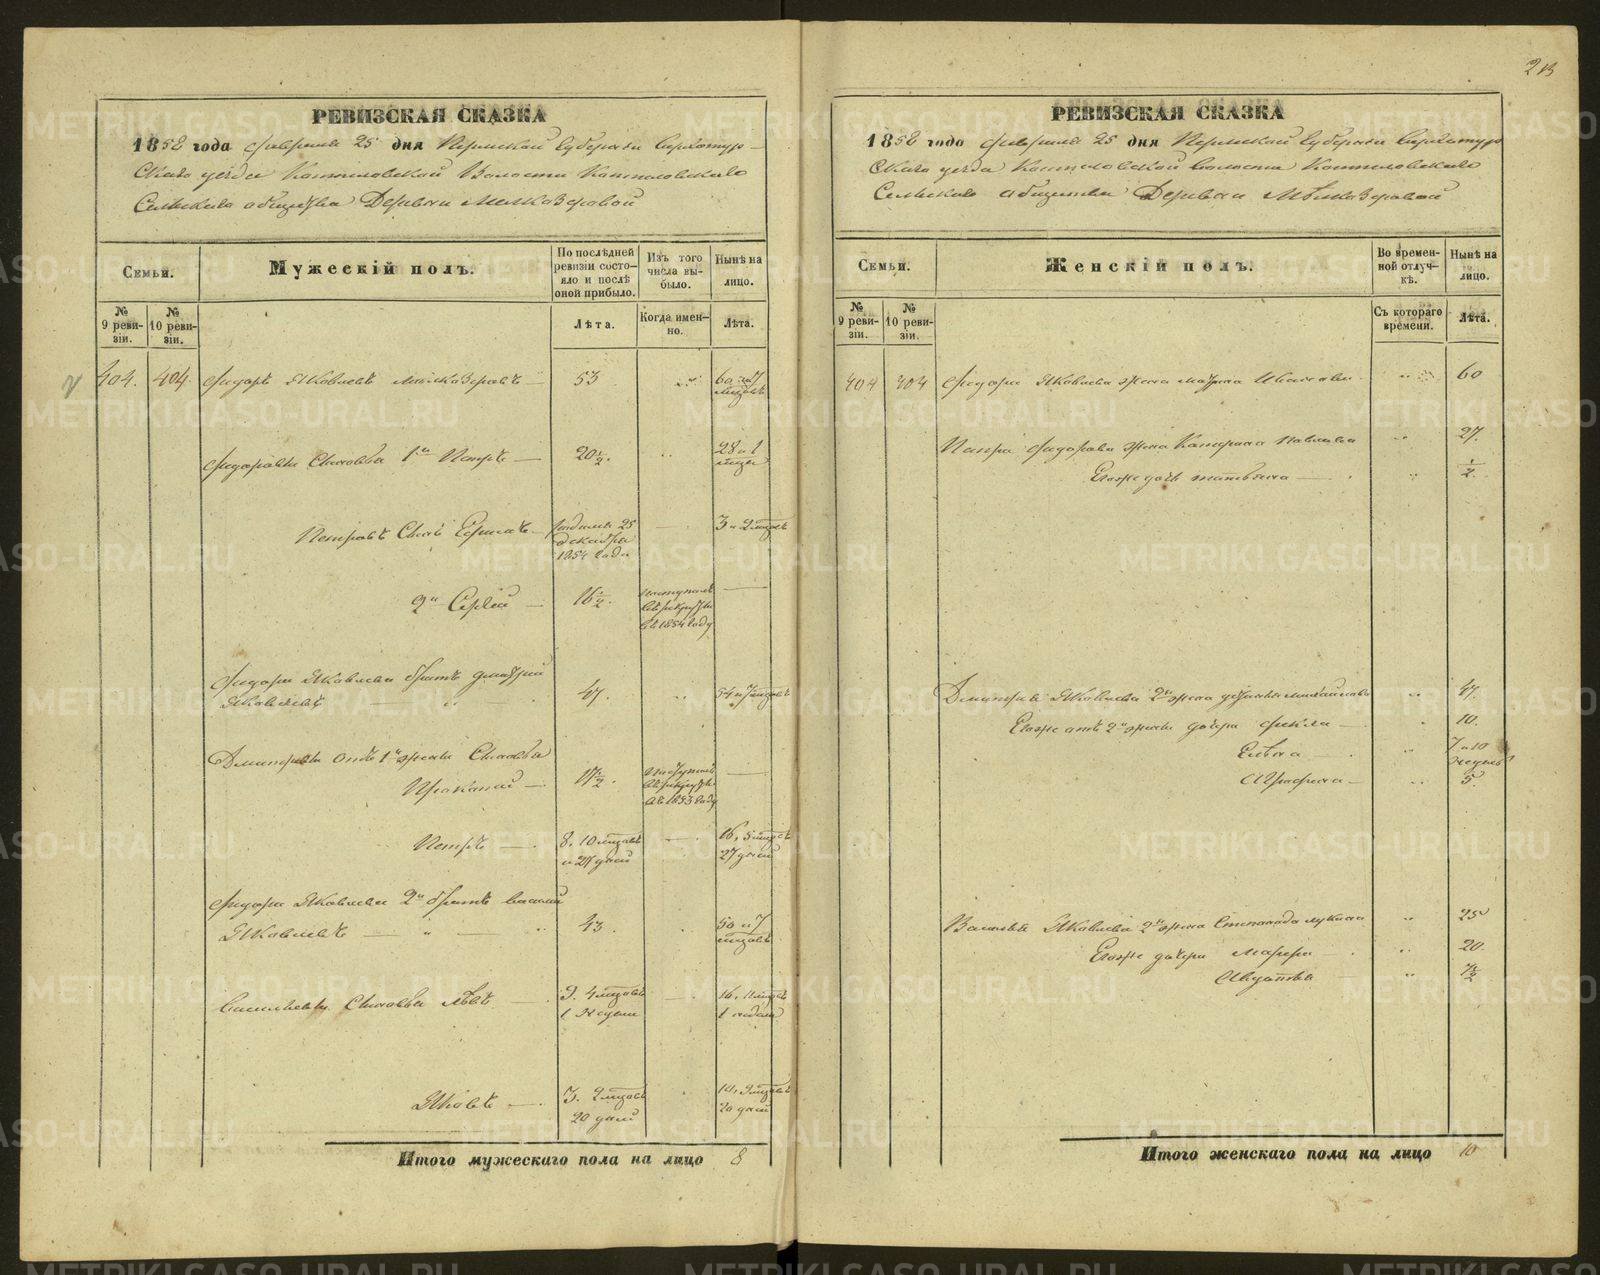 213
РЕВИЗСКАЯ СКАЗКА
1858 года февраля 25 дня Пермской Губернии Верхотур-
скаго уезда Коптеловской Волости Коптеловскаго
Сельскаго общества Деревни Мелкозеровой
Семьи.
Мужескій полъ.
По послѣдней ревизіи состо-
яло и послѣ оной прибыло.
Изъ того числа вы-
было.
Нынѣ на лицо.
№ 9 реви-
зіи.
№ 10 реви-
зіи.
Лѣта.
Когда имен-
но.
Лѣта.
404. 404. Фидоръ Яковлевъ Мелкозеровъ 53 60 и 7 месяцовъ
Фидоровы Сыновья 1й Петръ 20½. 28 и 1 месяц
Петровъ Сынъ Ермилъ родился 25 декабря 1854 года 3 и 2 месяцъ
2й Сергей 16½. поступилъ въ рекруты въ 1854 году
Фидора Яковлева братъ Дмитрий
Яковлевъ 47. 54 и 7 месяцовъ
Дмитрия отъ 1й жены Сыновья
Прокопий 17½. Поступилъ въ рекруты въ 1853 году
Петръ 8. 10 месяцовъ и 27 дней 16. 5 месяцовъ 27 дней
Фидора Яковлева 2й братъ Василий
Яковлевъ 43. 50 и 7 месяцовъ
Васильевы Сыновья Лѣвъ 9. 4 месяцовъ 1 недели 16. 11 месяцовъ 1 недели
Яковъ 7. 2 месяцовъ 20 дней 14. 9 месяцовъ 20 дней
Итого мужескаго пола на лицо 8
РЕВИЗСКАЯ СКАЗКА
1858 года февраля 25 дня Пермской Губернии Верхотур
скаго уезда Коптеловской волости Коптеловскаго
Сельскаго общества Деревни Мѣлкозеровой
Семьи.
Женскій полъ.
Во времен-
ной отлуч-
кѣ.
Нынѣ на лицо.
№ 9 реви-
зіи.
№ 10 реви-
зіи.
Съ котораго времени.
Лѣта.
404 404 Фидора Яковлева жена Матрена Иванова 60
Петра Фидорова жена Катерина Павлова 27.
Егоже дочь Татьяна ½.
Дмитрия Яковлева 2я жена Михайлова 47.
Егоже отъ 2й жены дочери Фекла 10.
Елена 7 и 10 недель
Аграфена 5.
Василья Яковлева 2я жена Степанида Лукина 25
Егоже дочери Марфа 20.
Авдотья
Итого женскаго пола на лицо 10
METRIKI.GASO-URAL.RU